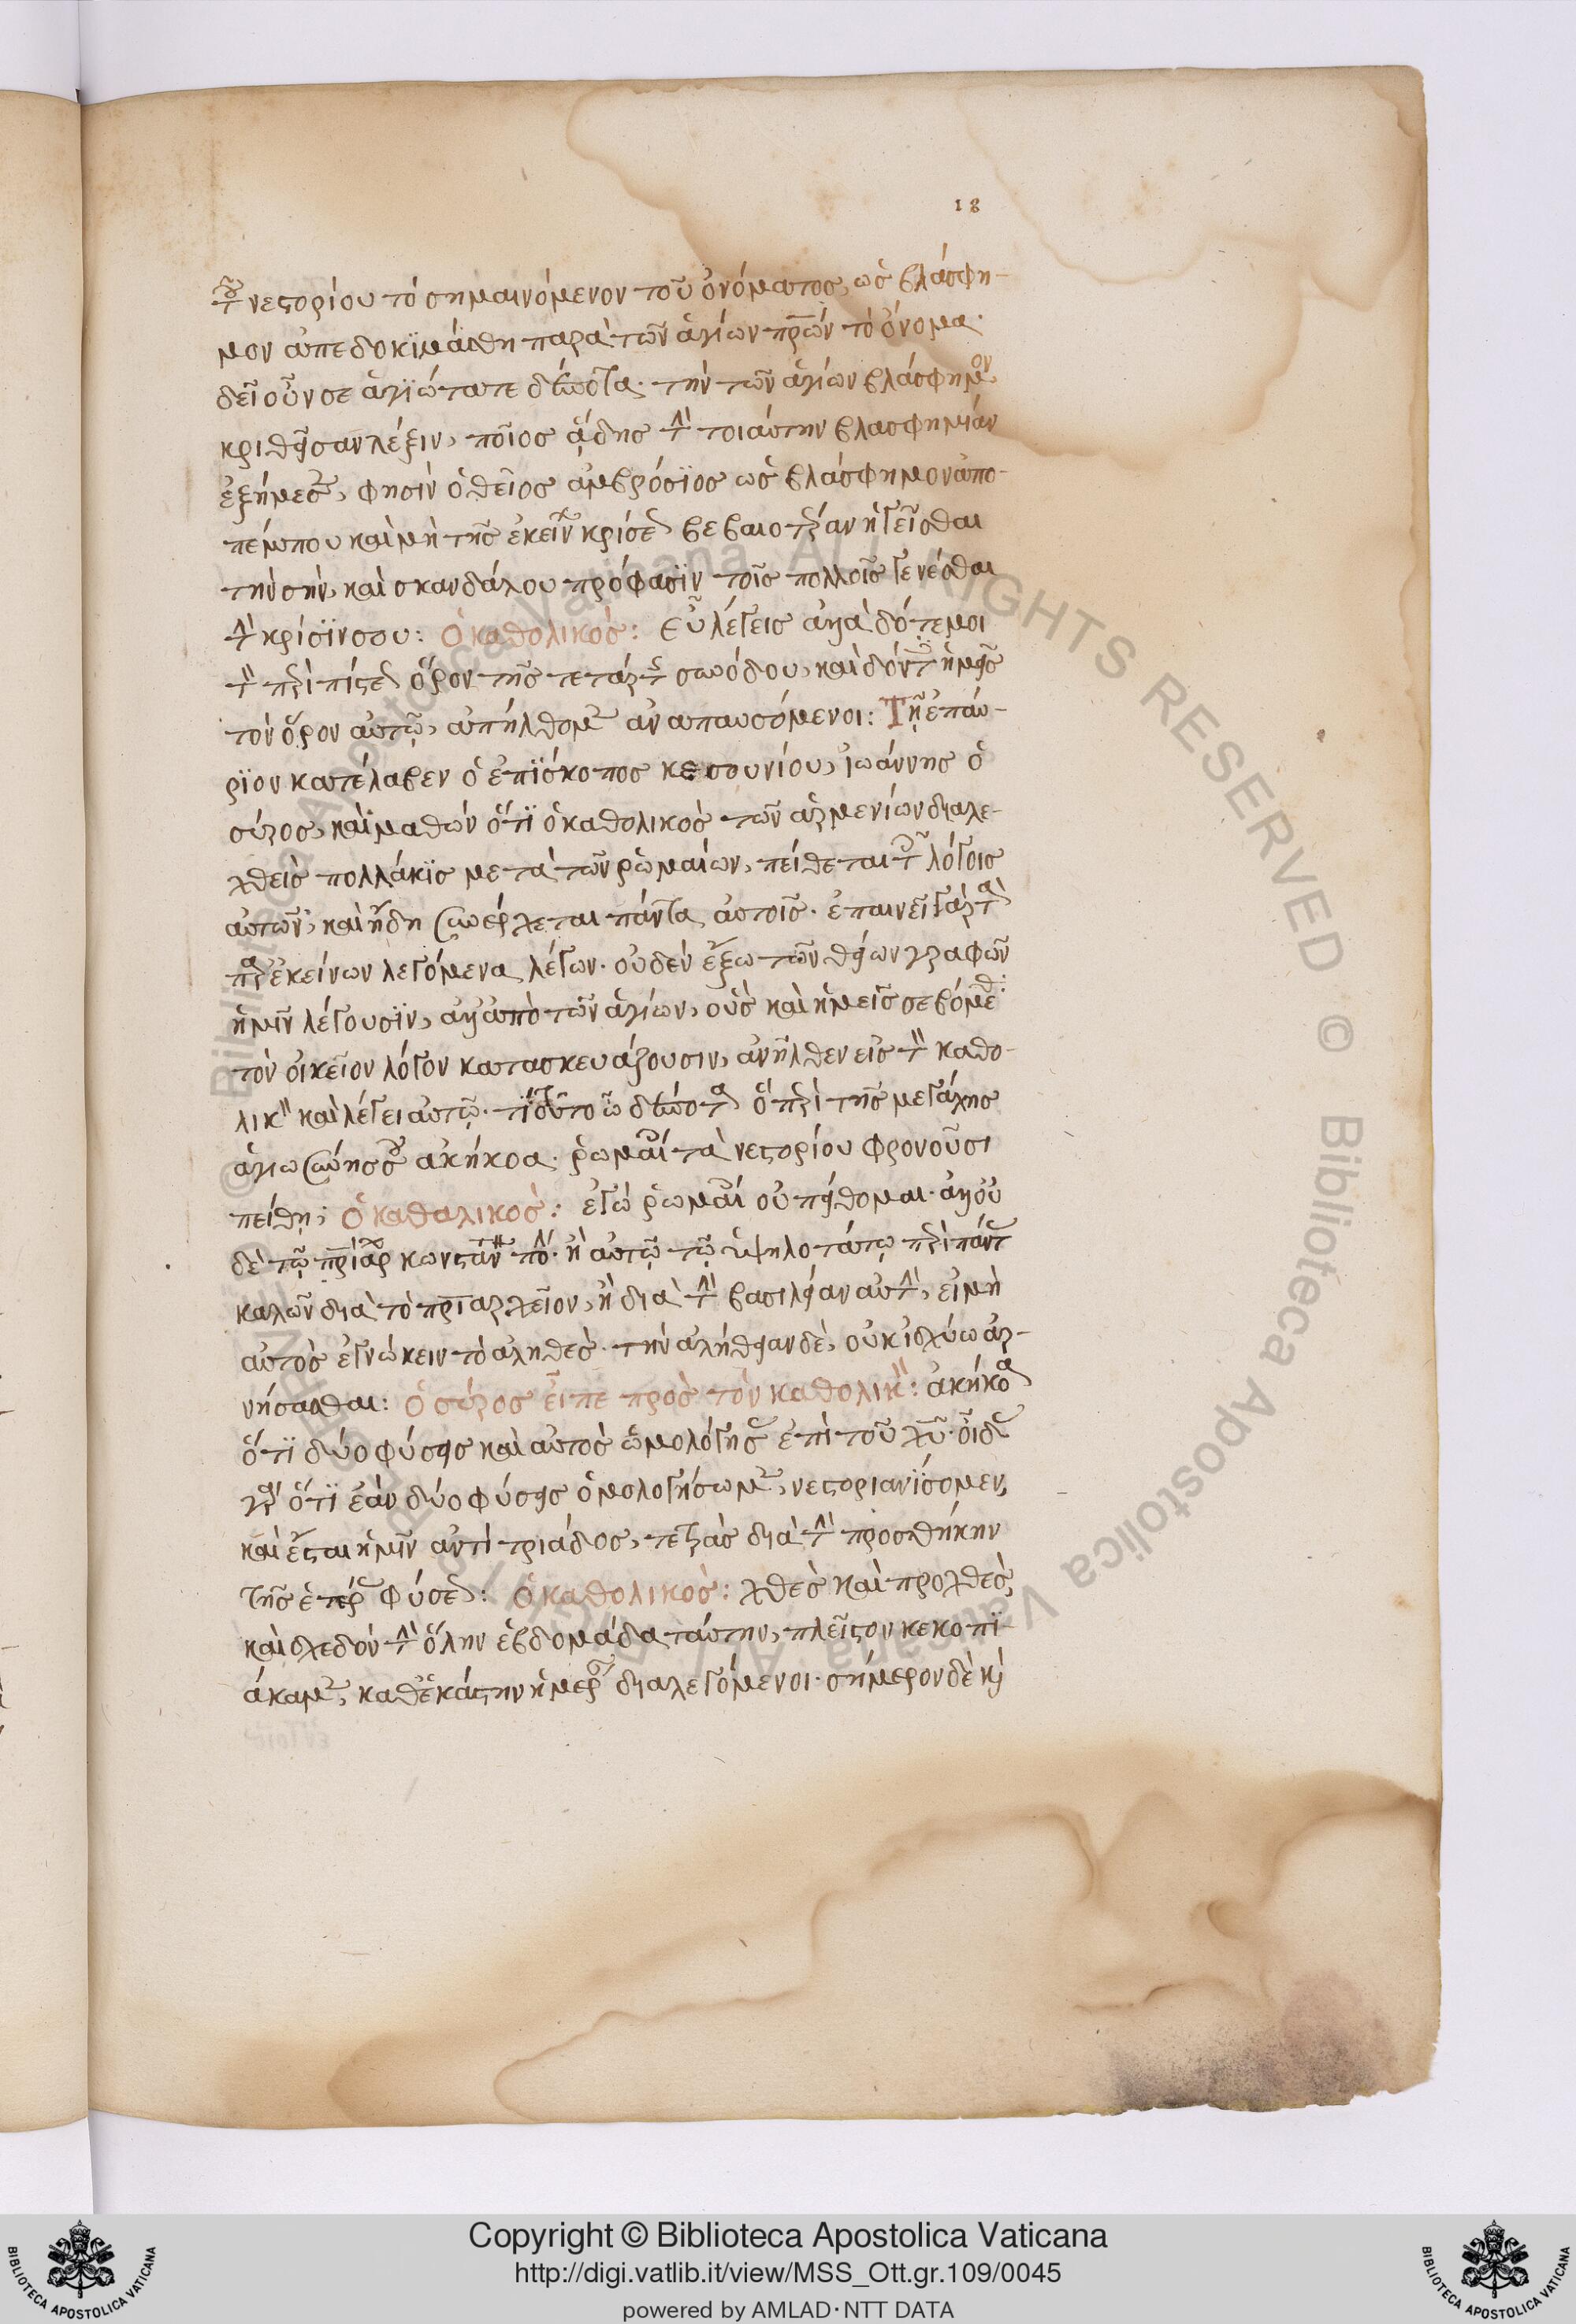 18
τοῦ νεστορίου τὸ σημαινόμενον τοῦ ὀνόματος, ὡς βλάσφη-
μον ἀπεδοκιμάσθη παρὰ τῶν ἁγίων πρῶν τὸ ὄνομα·
δεῖ οὖν σε ἁγιώτατε δέσποτα· τὴν τῶν ἁγίων βλάσφημον
κριθεῖσαν λέξιν, ποῖος ᾅδης τὴν τοιαύτην βλασφημίαν
ἐξήμεσε, φησὶν ὁ θεῖος ἀμβρόσιος ὡς βλάσφημον ἀπο-
πέμπου καὶ μὴ τῆς ἐκείνων κρίσεως βεβαιοτέραν ἡγεῖσθαι
τὴν σὴν, καὶ σκανδάλου πρόφασιν τοῖς πολλοῖς γενέσθαι
τὴν κρίσιν σου: Ὁ καθολικὸς: Εὖ λέγεις ἀλλὰ δότε μοι
τὸν περὶ πίστεως ὅρον τῆς τετάρτης συνόδου, καὶ δόντες ἡμεῖς
τὸν ὅρον αὐτῷ, ἀπήλθομεν ἀναπαυσόμενοι: Τῇ ἐπαύ-
ριον κατέλαβεν ὁ ἐπίσκοπος κεσουνίου, ἰωάννης ὁ
σύρος, καὶ μαθὼν ὅτι ὁ καθολικὸς τῶν ἀρμενίων διαλε-
χθεὶς πολλάκις μετὰ τῶν ῥωμαίων, πείθεται τοῖς λόγοις
αὐτῶν, καὶ ἤδη συνέρχεται πάντα αὐτοῖς· ἐπαινεῖ γὰρ τὰ
παρ' ἐκείνων λεγόμενα λέγων· οὐδὲν ἔξω τῶν θείων γραφῶν
ἡμῖν λέγουσιν, ἀλλ' ἀπὸ τῶν ἁγίων, οὓς καὶ ἡμεῖς σεβόμεθα:
τὸν οἰκεῖον λόγον κατασκευάζουσιν, ἀνῆλθεν εἰς τὸν καθο-
λικὸν καὶ λέγει αὐτῷ· τί τοῦτο ὦ δέσποτα ὃ περὶ τῆς μεγάλης
ἁγιωσύνης σου ἀκήκοα· ῥωμαίοις τὰ νεστορίου φρονοῦσι
πείθῃ; Ὁ καθαλικὸς: ἐγὼ ῥωμαίοις οὐ πείθομαι· ἀλλ' οὐ
δὲ τῷ πριάρχῃ κωνσταντίνου πόλεως· ἢ αὐτῷ τῷ ὑψηλοτάτῳ περὶ πάντων
καλῶν διὰ τὸ πριαρχεῖον, ἢ διὰ τὴν βασιλείαν αὐτὴν, εἰ μὴ
αὐτὸς ἐγνώκειν τὸ ἀληθὲς· τὴν ἀλήθειαν δὲ, οὐκ ἰσχύω ἀρ-
νήσασθαι: Ὁ σύρος εἶπε πρὸς τὸν καθολικὸν: ἀκήκοα
ὅτι δύο φύσεις καὶ αὐτὸς ὡμολόγησας ἐπὶ τοῦ χυ· οἶδας
γὰρ ὅτι ἐὰν δύο φύσεις ὁμολογήσωμεν, νεστοριανίσομεν,
καὶ ἔσται ἡμῖν ἀντὶ τριάδος, τετρὰς διὰ τὴν προσθήκην
τῆς ἑτέρας φύσεως: Ὁ καθολικὸς: χθὲς καὶ προχθὲς,
καὶ σχεδὸν τὴν ὅλην ἑβδομάδα ταύτην, πλεῖστον κεκοπι-
άκαμεν, καθ' ἑκάστην ἡμέραν διαλεγόμενοι· σήμερον δὲ καὶ
Copyright © Biblioteca Apostolica Vaticana
http://digi.vatlib.it/view/MSS_Ott.gr.109/0045
powered by AMLAD·NTT DATA
BIBLIOTECA APOSTOLICA VATICANA
BIBLIOTECA APOSTOLICA VATICANA